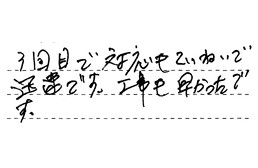 3回目で対応もていねいで
迅速です。工事も早かったで
す。